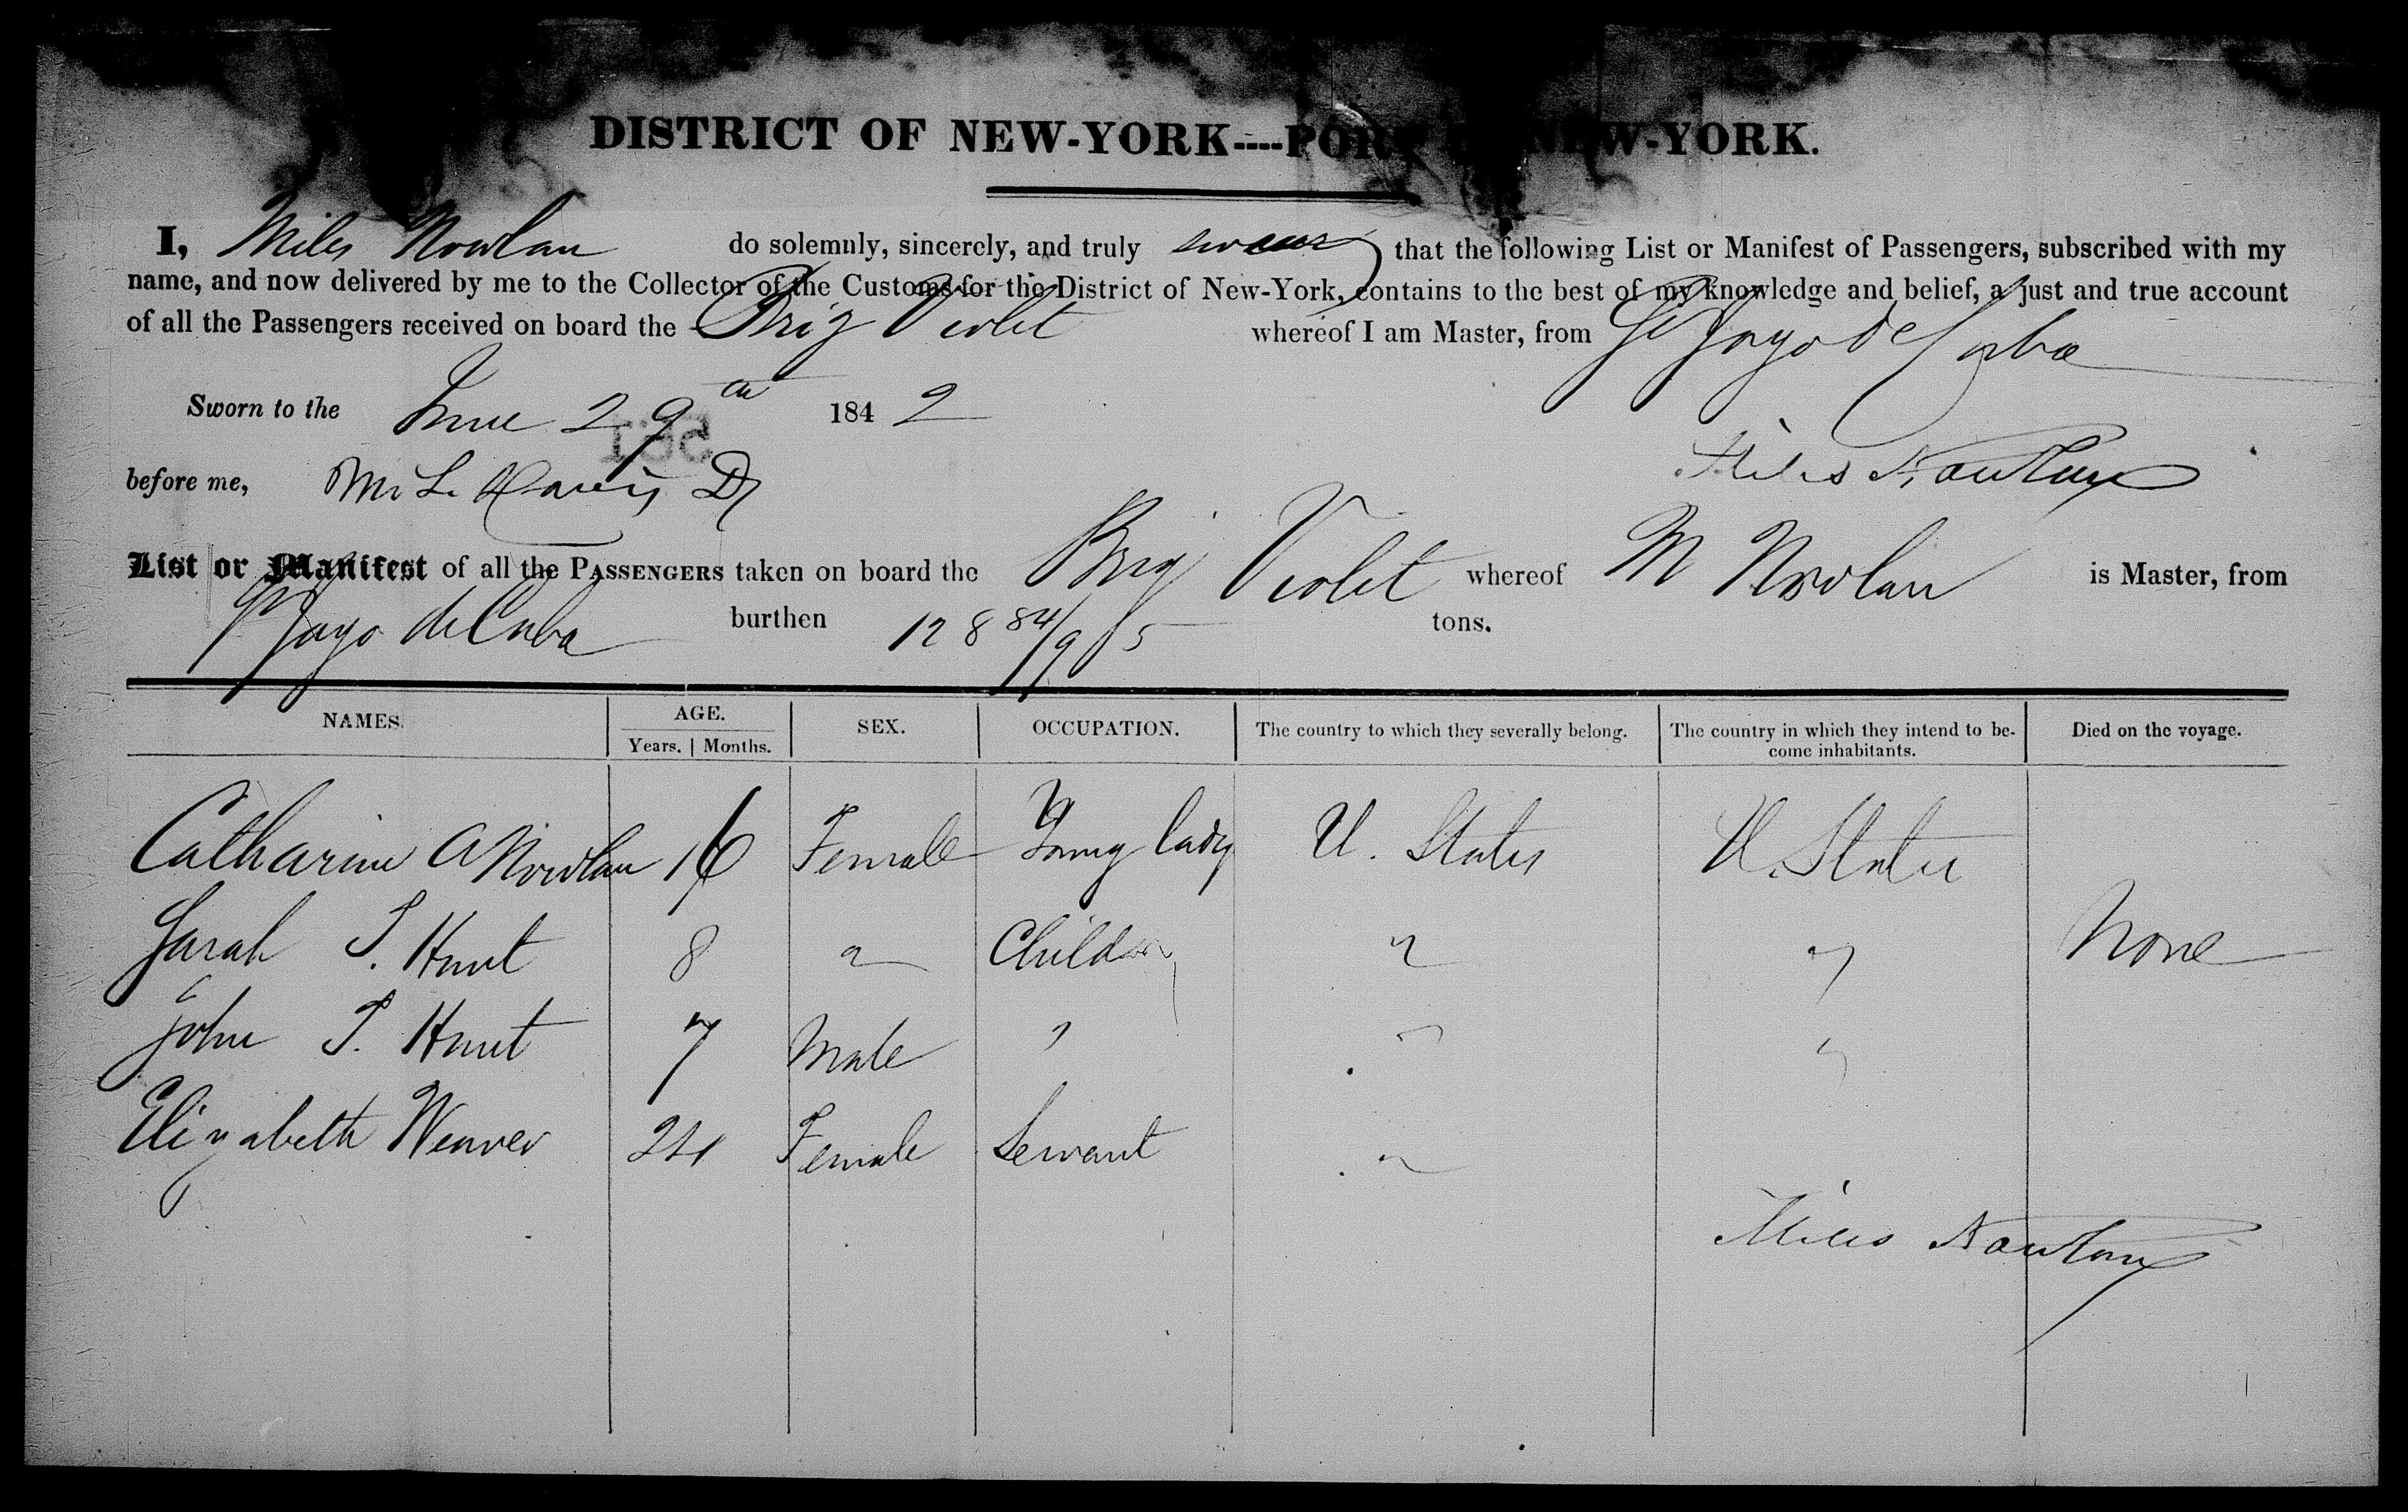 DISTRICT OF NEW-YORK----PORT OF NEW-YORK.
I, Miles Nowlan do solemnly, sincerely, and truly swear that the following List or Manifest of Passengers, subscribed with my
name, and now delivered by me to the Collector of the Customs for the District of New-York, contains to the best of my knowledge and belief, a just and true account
of all the Passengers received on board the Brig Violet whereof I am Master, from St Jago de Cuba
Sworn to the June 29th 1842
before me, Miles Nowlan
List or Manifest of all the PASSENGERS taken on board the Brig Violet whereof M Nowlan is Master, from
St Jago de Cuba burthen 128 84/95 tons.
NAMES. AGE. SEX. OCCUPATION. The country to which they severally belong. The country in which they intend to be- Died on the voyage.
Years. | Months. come inhabitants.
Catharine A Nowlan 16 Female Young lady U. States U. States
Sarah T. Hunt 8 " Children " " None
John T. Hunt 7 Male " " "
Elizabeth Weaver 24 Female Servant "
Miles Nowlan